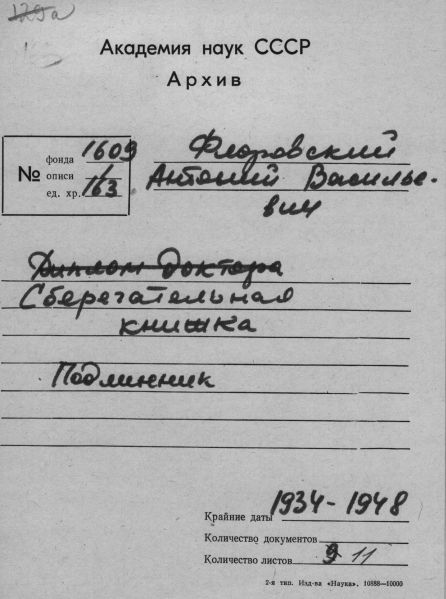 129а
Академия наук СССР
Архив
Флоровский
№ фонда 1609
описи 1
ед. хр. 163
Антоний Василье-
вич
Диплом доктора
Сберегательная
книжка
Подлинник
Крайние даты 1934-1948
Количество документов
Количество листов 9 11
2-я тип. Изд-ва «Наука», 10888—10000